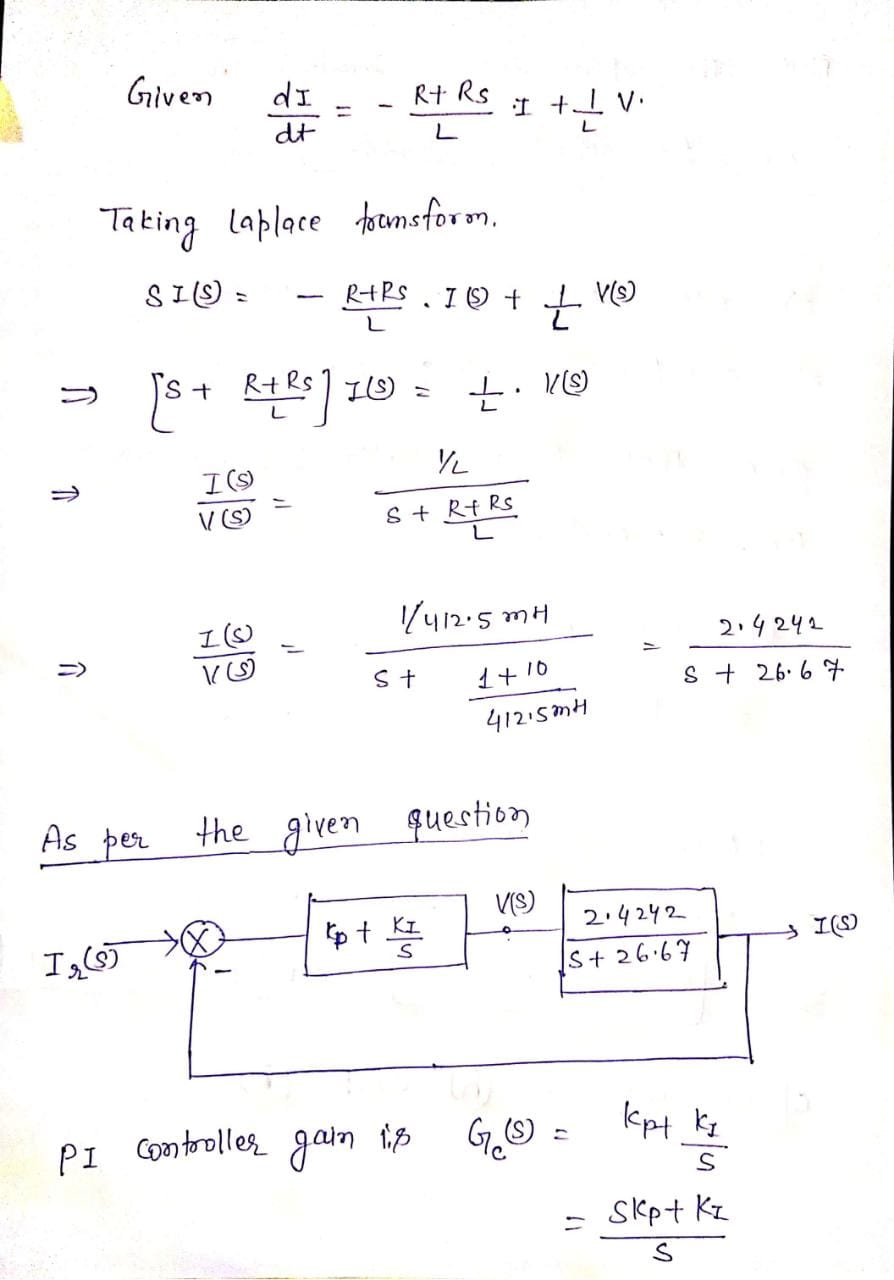 Given dI/dt = - R+Rs/L · I + 1/L V.
Taking laplace transform.
S I(S) = - R+RS/L . I(S) + 1/L V(S)
⇒ [S + R+Rs/L] I(S) = 1/L . V(S)
⇒ I(S)/V(S) = 1/L / S + R+Rs/L
⇒ I(S)/V(S) = 1/412.5 mH / S + 1+10/412.5mH = 2.4242 / S + 26.67
As per the given question
Ir(S) - Kp + KI/S V(S) 2.4242 / S + 26.67 I(S)
PI controller gain is Gc(S) = Kp+ KI/S
= SKp+ KI / S